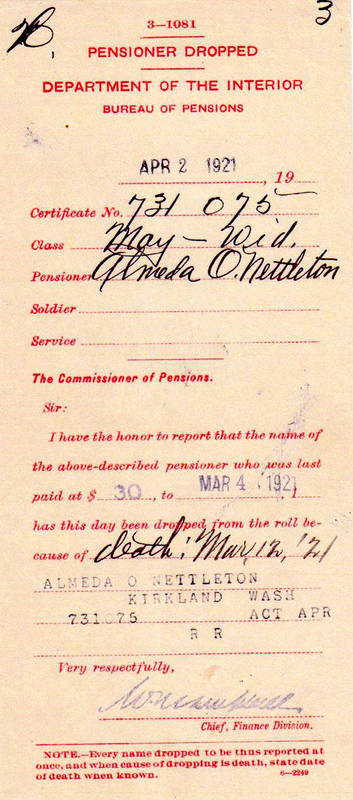 3
3—1081
PENSIONER DROPPED
DEPARTMENT OF THE INTERIOR
BUREAU OF PENSIONS
APR 2 1921 , 19
Certificate No. 731 075
Class May - Wid.
Pensioner Almeda O. Nettleton
Soldier
Service
The Commissioner of Pensions.
Sir:
I have the honor to report that the name of
the above-described pensioner who was last
paid at $ 30 , to MAR 4 1921, 1
has this day been dropped from the roll be-
cause of death: Mar, 12, '21
ALMEDA O NETTLETON
KIRKLAND WASH
731075 ACT APR
R R
Very respectfully,
Chief, Finance Division.
NOTE.—Every name dropped to be thus reported at
once, and when cause of dropping is death, state date
of death when known.
6—2249